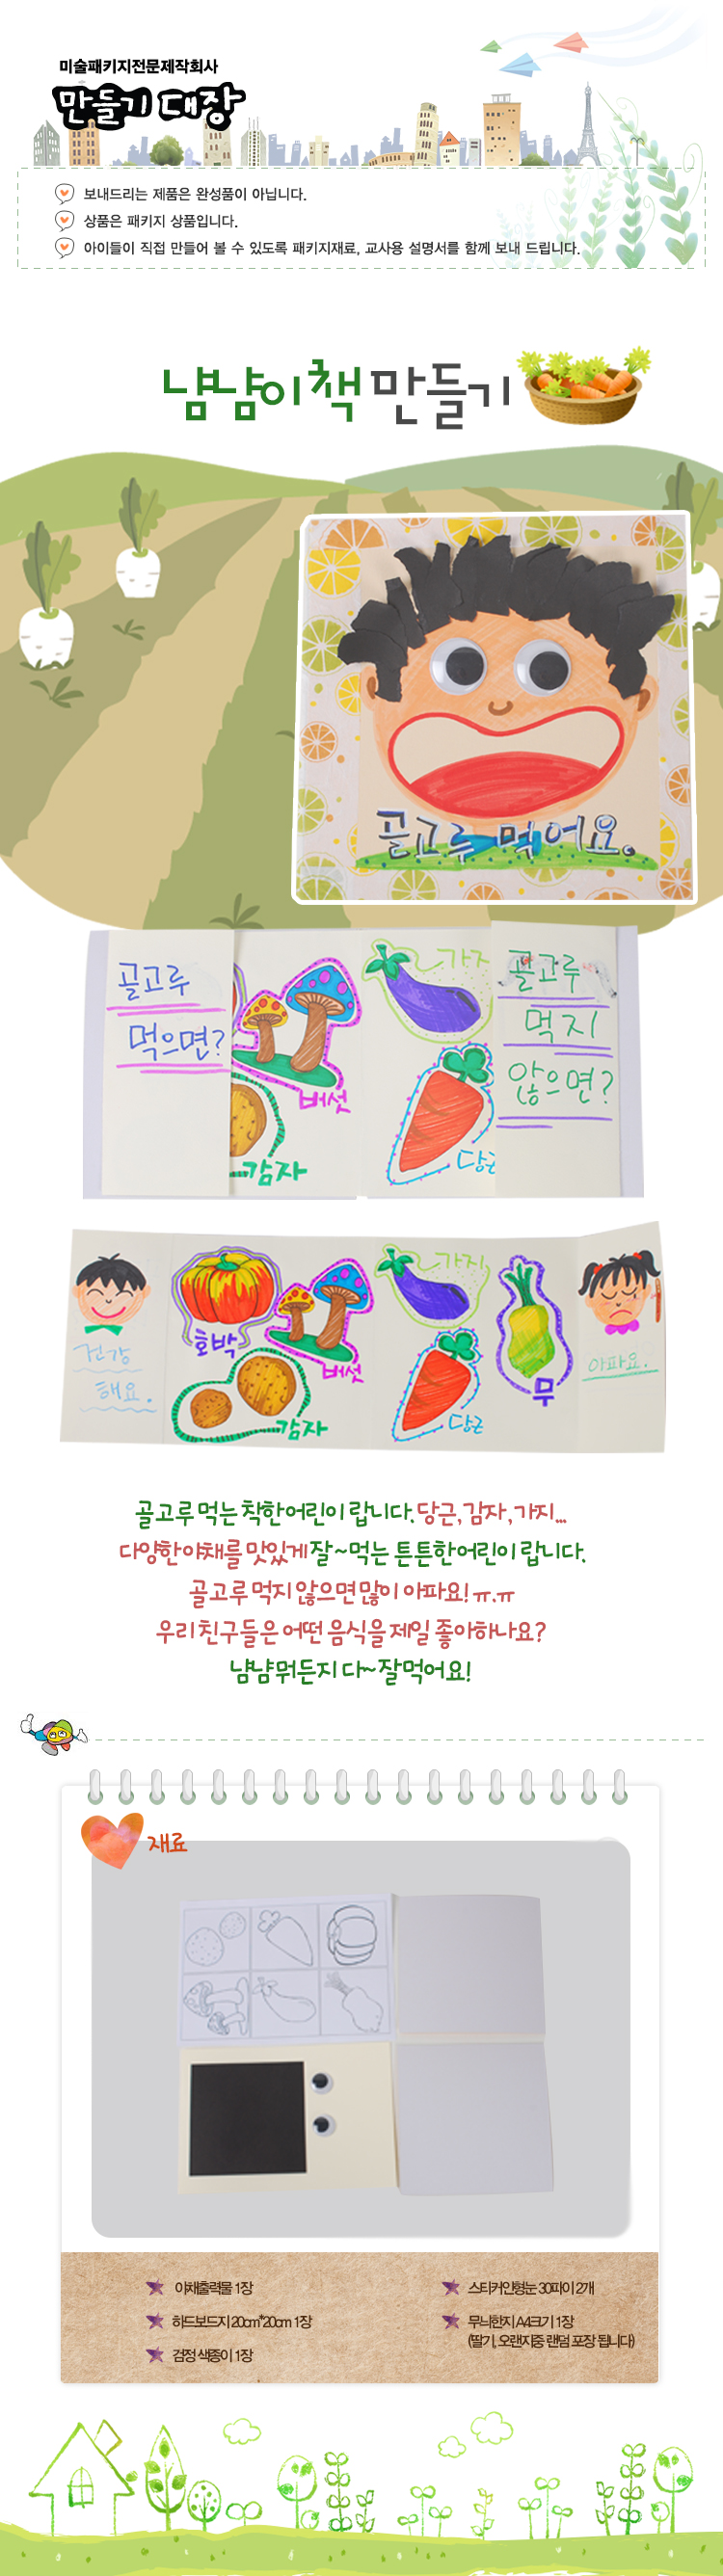 미술패키지전문제작회사
만들기 대장
보내드리는 제품은 완성품이 아닙니다.
상품은 패키지 상품입니다.
아이들이 직접 만들어 볼 수 있도록 패키지재료, 교사용 설명서를 함께 보내 드립니다.
냠냠이책 만들기
골고루 먹어요.
골고루
먹으면?
버섯
감자
가지
당근
골고루
먹지
않으면?
건강
해요.
호박
버섯
감자
가지
당근
무
아파요.
골고루 먹는 착한 어린이 랍니다. 당근, 감자, 가지...
다양한 야채를 맛있게 잘~먹는 튼튼한 어린이 랍니다.
골고루 먹지 않으면 많이 아파요! ㅠ.ㅠ
우리 친구들은 어떤 음식을 제일 좋아하나요?
냠냠 뭐든지 다~ 잘먹어요!
재료
야채출력물 1장
하드보드지 20cm*20cm 1장
검정 색종이 1장
스티커인형눈 30파이 2개
무늬한지 A4크기 1장
(딸기, 오랜지중 랜덤 포장 됩니다)